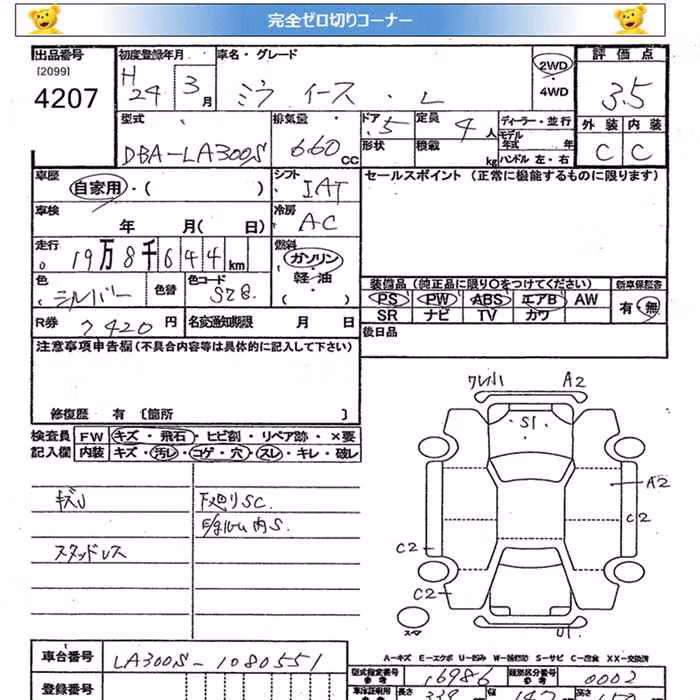 完全ゼロ切りコーナー
出品番号 初度登録年月 車名・グレード 評価点
[2099] H 2WD
4207 24 3月 ミラ イース . L ・ 4WD 3.5
型式 排気量 ドア 定員 ディーラー・並行 外装 内装
DBA-LA300S 660cc 5 4人 モデル年式 年 C C
形状 積載 kg ハンドル 左・右
車歴 シフト セールスポイント (正常に機能するものに限ります)
自家用・( ) IAT
車検 冷房
年 月( 日) AC
走行 燃料
19万8千644km ガソリン
軽・油
色 色替 色コード 装備品 (純正品に限り〇をつけてください) 新車保証書
シルバー S28. PS PW ABS エアB AW 有・無
R券 7420円 名変通知期限 月 日 SR ナビ TV カワ
注意事項申告欄(不具合内容等は具体的に記入して下さい) 後日品
修復歴 有 [箇所 ]
検査員 FW キズ・飛石・ヒビ割・リペア跡・×要
記入欄 内装 キズ・汚レ・コゲ・穴・スレ・キレ・破レ
キズU 下廻りSC.
内S.
スタッドレス
A2
S1
A2
C2
C2
C2
U1
スペア
A-キズ E-エクボ U-凹み W-補修跡 S-サビ C-腐食 XX-交換済
車台番号 LA300S-1080551
型式指定番号 参考 16986 類別区分番号 参考 0002
登録番号 車庫証明用 参考 長さ 339 幅 147 高さ 150